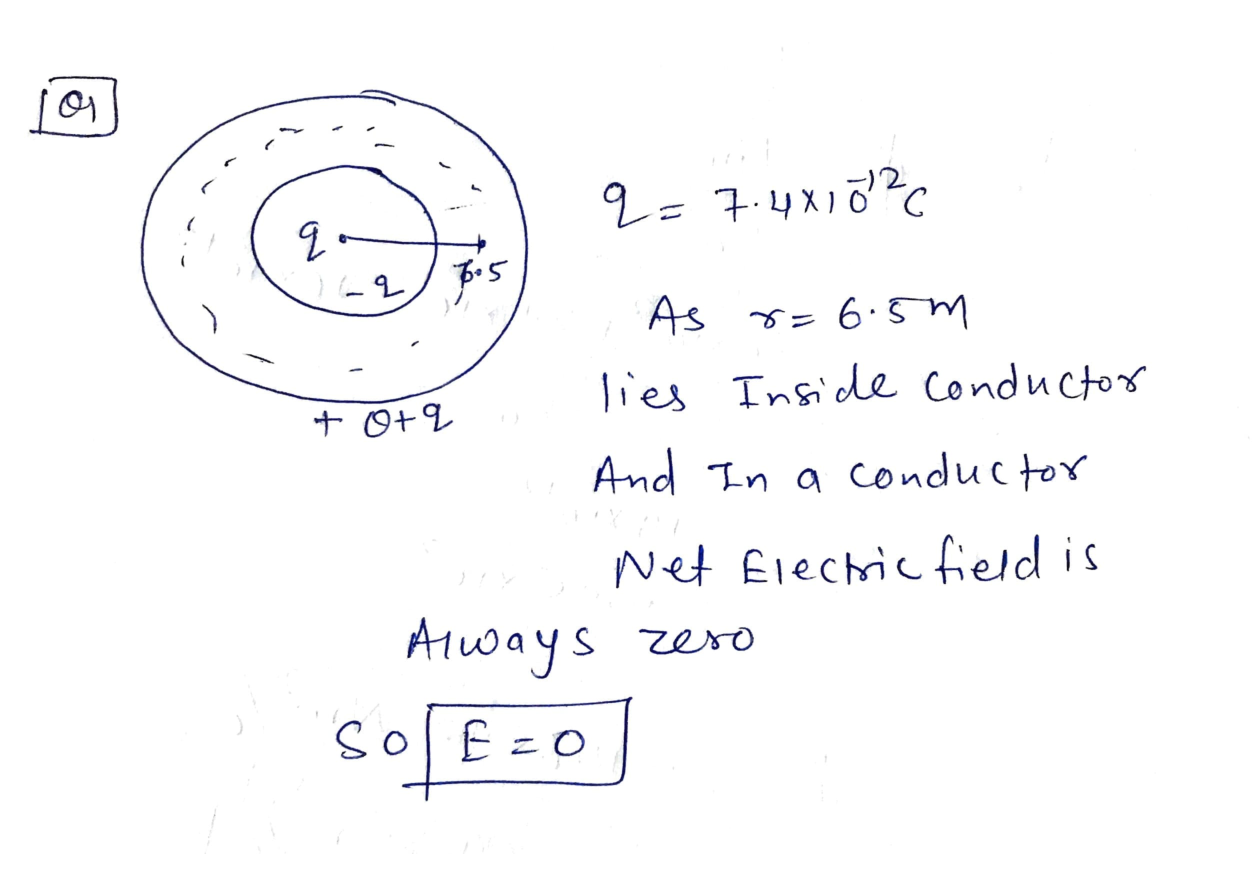 q
-q
+ Q+q
q = 7.4×10⁻¹²C
As r = 6.5m
lies Inside conductor
And In a conductor
Net Electric field is
Always zero
So E = 0